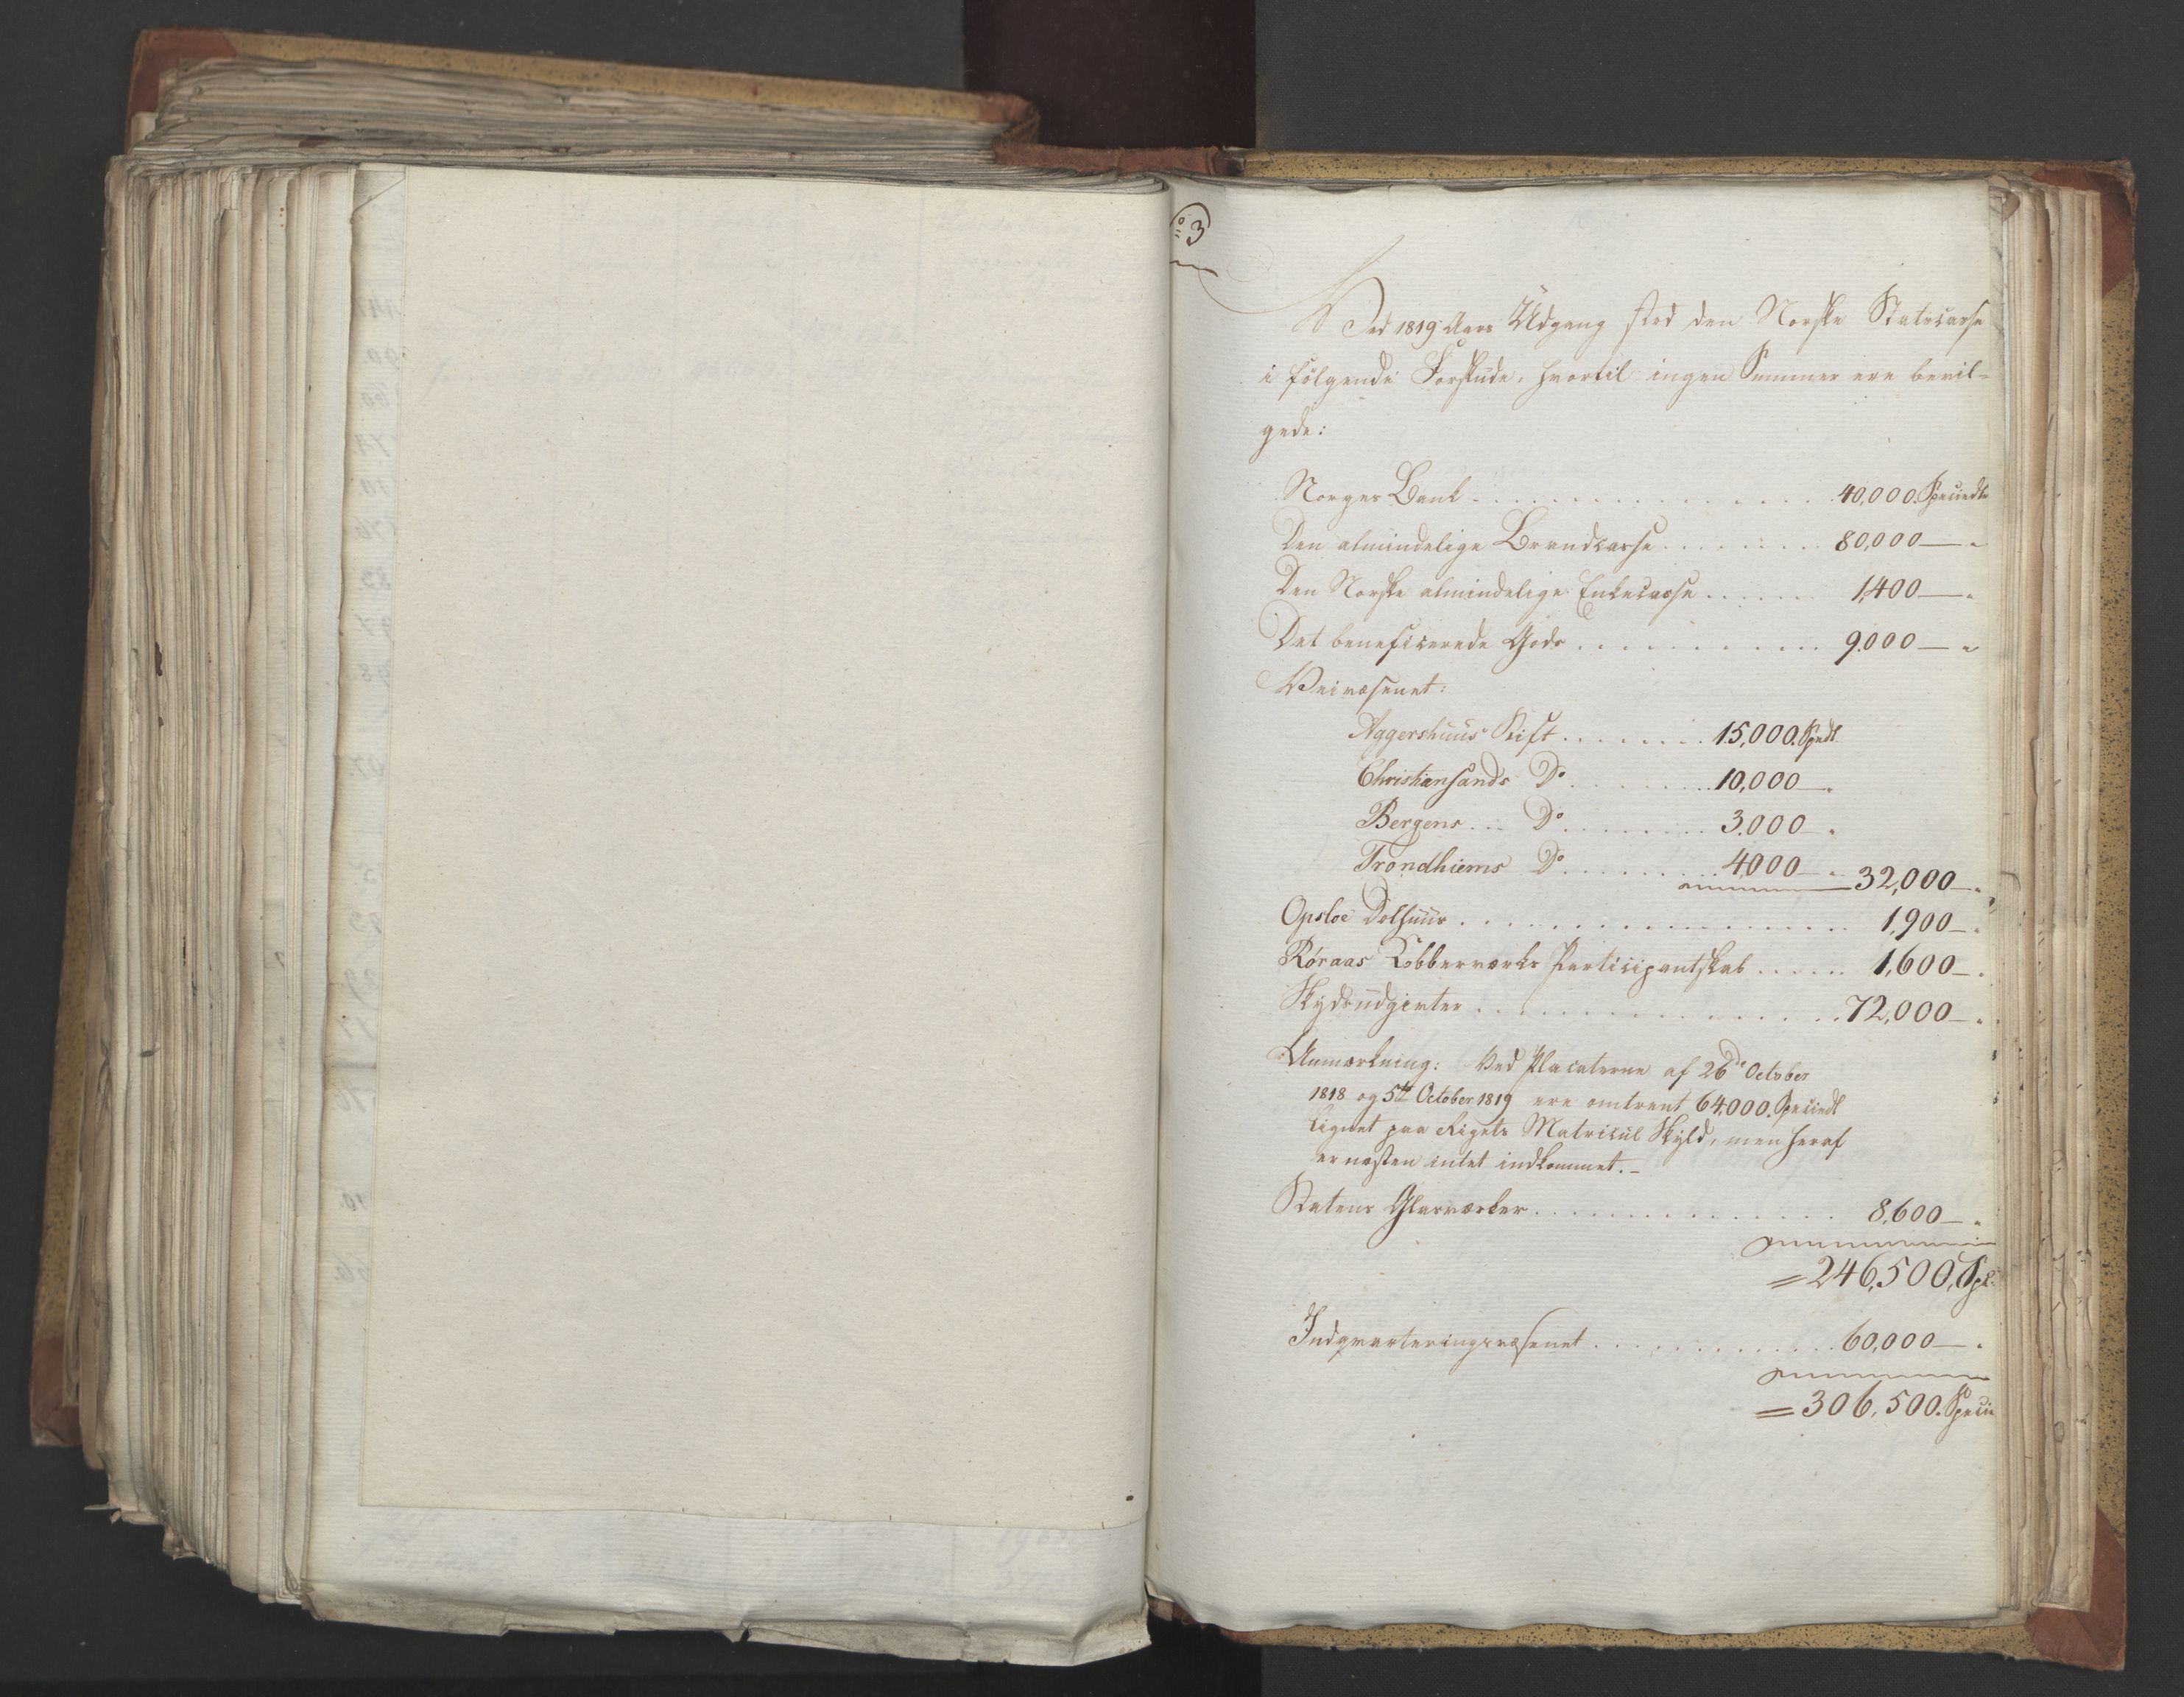 No 3
Ved 1819 Aars Udgang stod den Norske Statscasse
i følgende Forskuds, hvortil ingen Summer ere bevil-
gede:
Norges Bank . . . . . . . 40,000. Speciedlr
Den almindelige Brandcasse . . . . . . . 80,000 — "
Den Norske almindelige Enkecasse . . . . . . 1,400 — "
Det beneficerede Gods . . . . . . . 9,000 — "
Veivæsenet:
Aggershuus Stift . . . . . . . 15,000. Spdl.
Christiansands Do . . . . . . . 10,000 — "
Bergens . . . Do . . . . . . . 3,000 — "
Trondhiems Do . . . . . . . 4,000 — " 32,000 — "
Opsloe Dolhuus . . . . . . . 1,900 — "
Røraas Kobberværks Participantskab . . . . . . 1,600 — "
Skydsudgivter . . . . . . . 72,000 — "
Anmærkning: Ved Placaterne af 26de October
1818 og 5te October 1819 ere omtrent 64,000. Speciedl
lignet paa Rigets Matricul Skyld, men heraf
er næsten intet indkommet. —
Statens Glasværker . . . . . . . 8,600 — "
= 246,500, Spl.
Indqvarteringsvæsenet . . . . . . . 60,000 — "
= 306,500. Specie